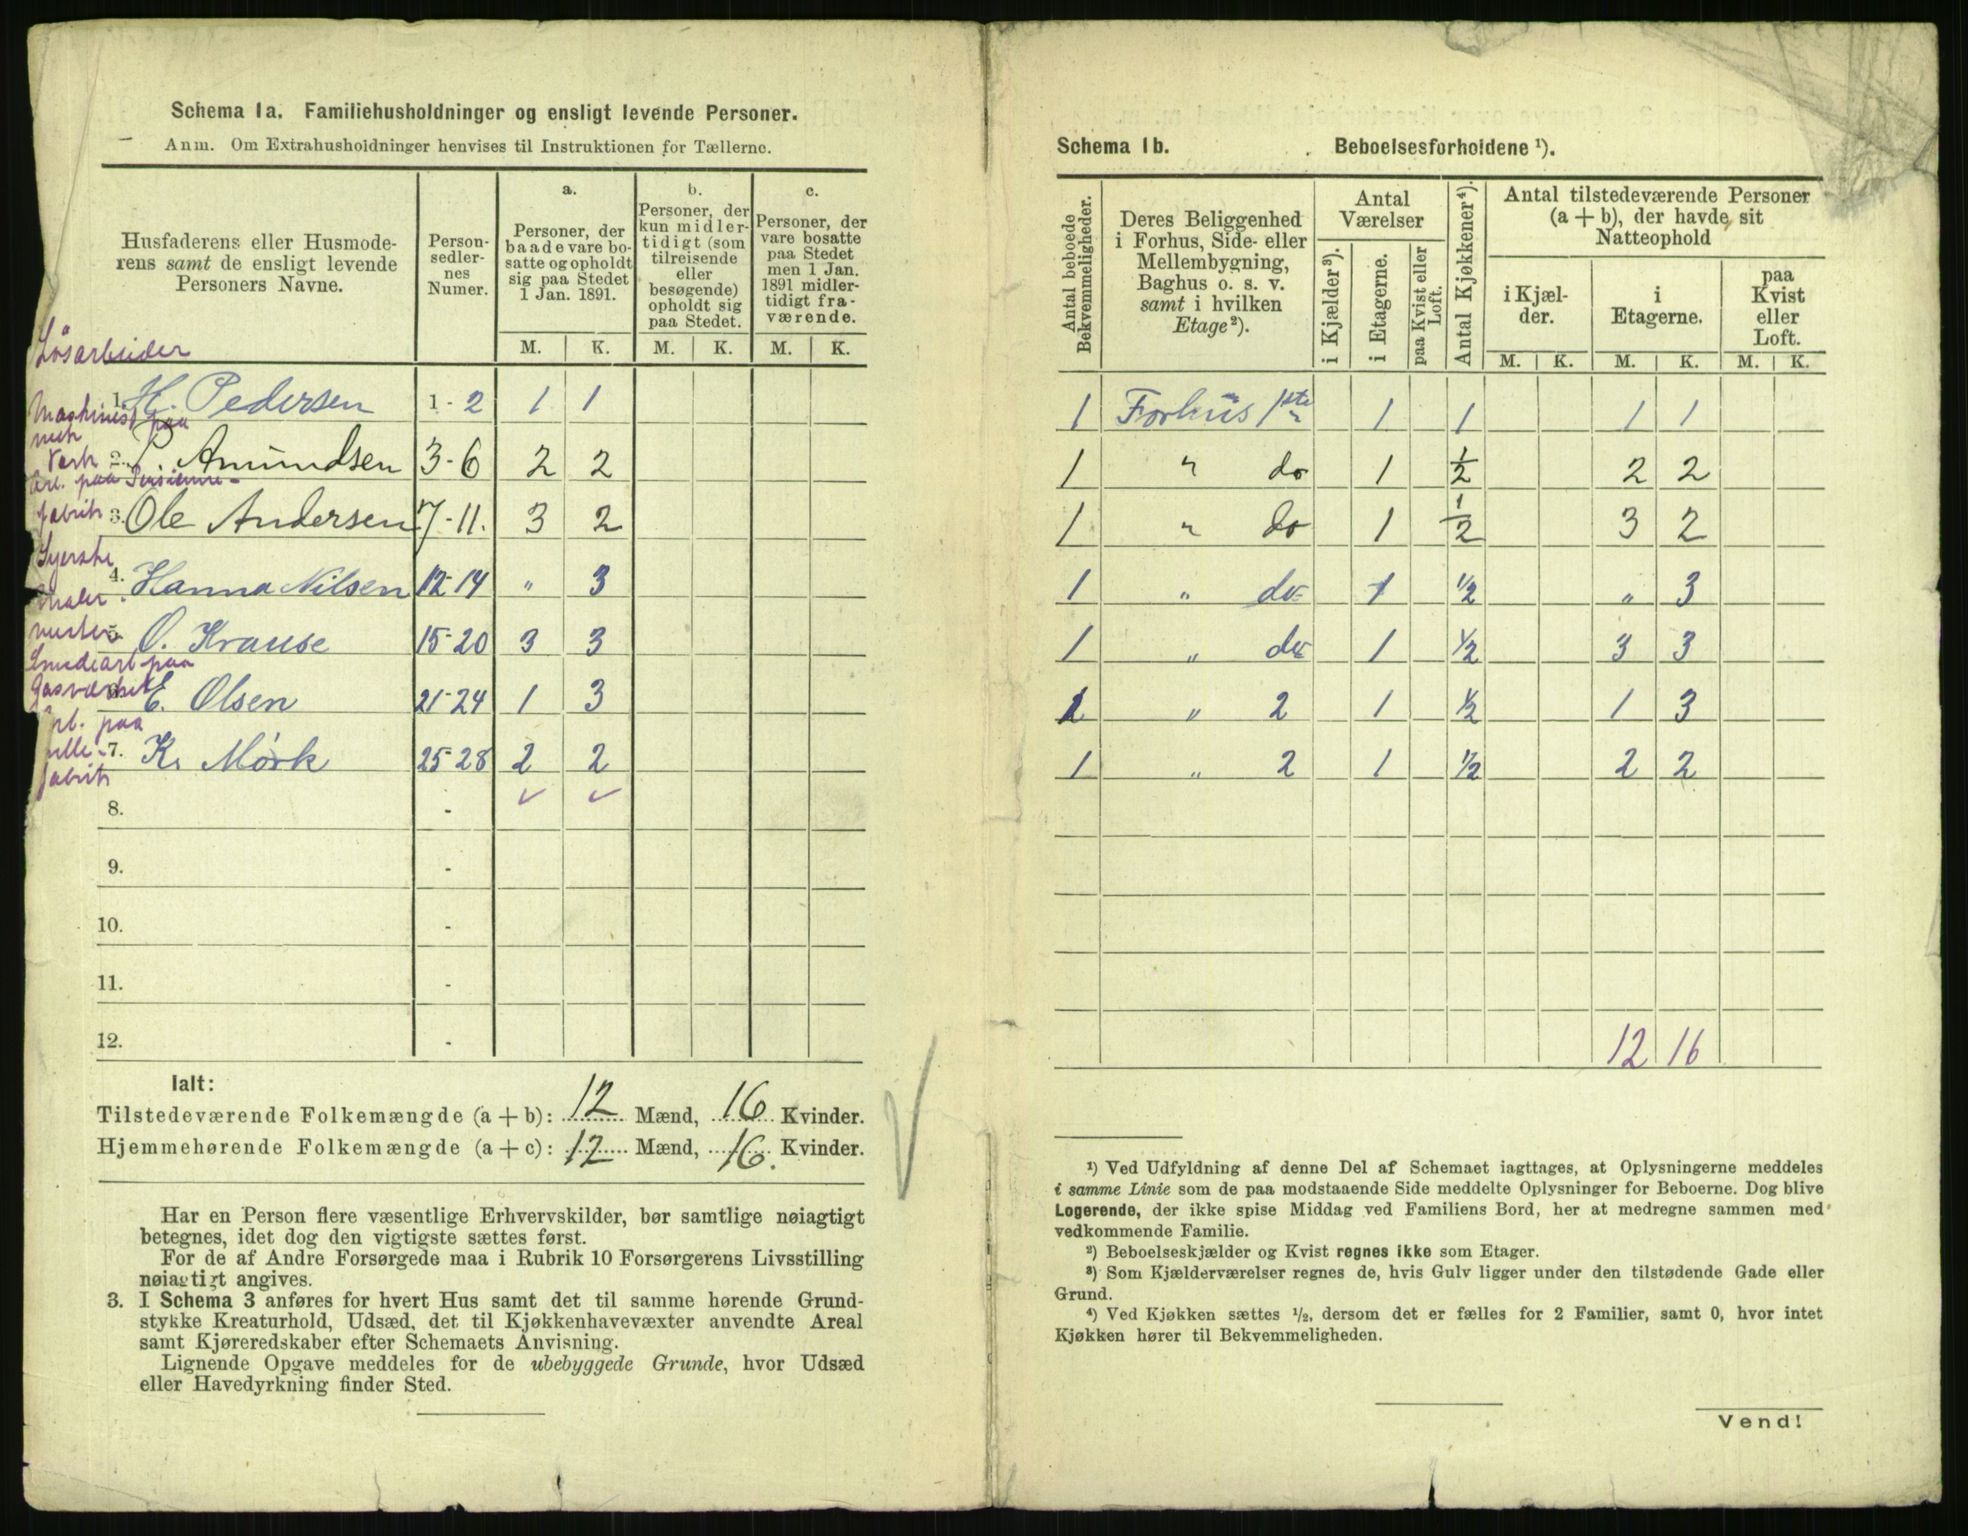 Schema 1a. Familiehusholdninger og ensligt levende Personer.
Anm. Om Extrahusholdninger henvises til Instruktionen for Tællerne.
Husfaderens eller Husmode-
rens samt de ensligt levende
Personers Navne.
Person-
sedler-
nes
Numer.
a.
Personer, der
baade vare bo-
satte og opholdt
sig paa Stedet
1 Jan. 1891.
b.
Personer, der
kun midler-
tidigt (som
tilreisende
eller
besøgende)
opholdt sig
paa Stedet.
c.
Personer, der
vare bosatte
paa Stedet
men 1 Jan.
1891 midler-
tidigt fra-
værende.
M. K. M. K. M. K.
Løsarbeider
1. H. Pedersen 1-2 1 1
Maskinist paa
mek
Værk
2. P. Amundsen 3-6 2 2
Arb. paa
fabrik
3. Ole Andersen 7-11. 3 2
Syerske
4. Hanna Nilsen 12-14 " 3
Maler
mester
5. O. Krause 15-20 3 3
Smedearb paa
Gasværket
6. E. Olsen 21-24 1 3
Arb. paa
7. K. Mørk 25-28 2 2
fabrik
8. -
9. -
10. -
11. -
12. -
Ialt:
Tilstedeværende Folkemængde (a + b): 12 Mænd, 16 Kvinder.
Hjemmehørende Folkemængde (a + c): 12 Mænd, 16. Kvinder.
Har en Person flere væsentlige Erhvervskilder, bør samtlige nøiagtigt
betegnes, idet dog den vigtigste sættes først.
For de af Andre Forsørgede maa i Rubrik 10 Forsørgerens Livsstilling
nøiagtigt angives.
3. I Schema 3 anføres for hvert Hus samt det til samme hørende Grund-
stykke Kreaturhold, Udsæd, det til Kjøkkenhavevæxter anvendte Areal
samt Kjøreredskaber efter Schemaets Anvisning.
Lignende Opgave meddeles for de ubebyggede Grunde, hvor Udsæd
eller Havedyrkning finder Sted.
Schema 1b. Beboelsesforholdene ¹).
Antal beboede
Bekvemmeligheder.
Deres Beliggenhed
i Forhus, Side- eller
Mellembygning,
Baghus o. s. v.
samt i hvilken
Etage ²).
Antal
Værelser
i Kjælder ³).
i Etagerne.
paa Kvist eller
Loft.
Antal Kjøkkener ⁴).
Antal tilstedeværende Personer
(a + b), der havde sit
Natteophold
i Kjæl-
der.
i
Etagerne.
paa
Kvist
eller
Loft.
M. K. M. K. M. K.
1 Forhus 1ste 1 1 1 1
1 " do 1 1/2 2 2
1 " do 1 1/2 3 2
1 " do 1 1/2 " 3
1 " do 1 1/2 3 3
1 " 2 1 1/2 1 3
1 " 2 1 1/2 2 2
12 16
¹) Ved Udfyldning af denne Del af Schemaet iagttages, at Oplysningerne meddeles
i samme Linie som de paa modstaaende Side meddelte Oplysninger for Beboerne. Dog blive
Logerende, der ikke spise Middag ved Familiens Bord, her at medregne sammen med
vedkommende Familie.
²) Beboelseskjælder og Kvist regnes ikke som Etager.
³) Som Kjælderværelser regnes de, hvis Gulv ligger under den tilstødende Gade eller
Grund.
⁴) Ved Kjøkken sættes ½, dersom det er fælles for 2 Familier, samt 0, hvor intet
Kjøkken hører til Bekvemmeligheden.
Vend!